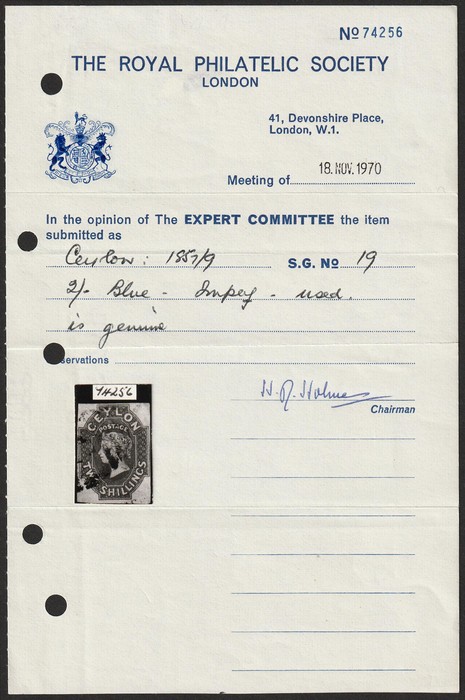 No 74256
THE ROYAL PHILATELIC SOCIETY
LONDON
41, Devonshire Place,
London, W.1.
Meeting of 18. NOV. 1970
In the opinion of The EXPERT COMMITTEE the item
submitted as
Ceylon: 1857/9 S.G. No 19
2/- Blue - Imperf - used.
is genuine
servations
H. R. Holmes
Chairman
74256
CEYLON
POSTAGE
TWO SHILLINGS